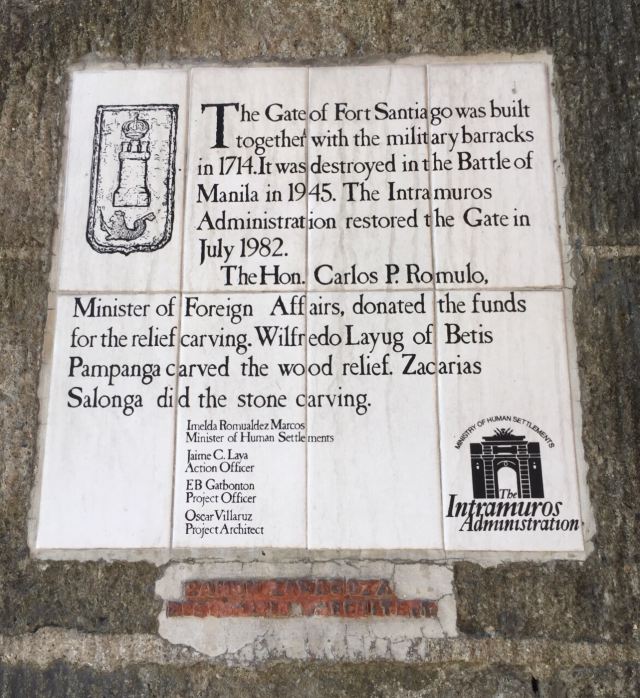 The Gate of Fort Santiago was built
together with the military barracks
in 1714. It was destroyed in the Battle of
Manila in 1945. The Intramuros
Administration restored the Gate in
July 1982.
The Hon. Carlos P. Romulo,
Minister of Foreign Affairs, donated the funds
for the relief carving. Wilfredo Layug of Betis
Pampanga carved the wood relief. Zacarias
Salonga did the stone carving.
Imelda Romualdez Marcos
Minister of Human Settlements
Jaime C. Laya
Action Officer
EB Gatbonton
Project Officer
Oscar Villaruz
Project Architect
MINISTRY OF HUMAN SETTLEMENTS
The
Intramuros
Administration
RAMON ZARAGOZA